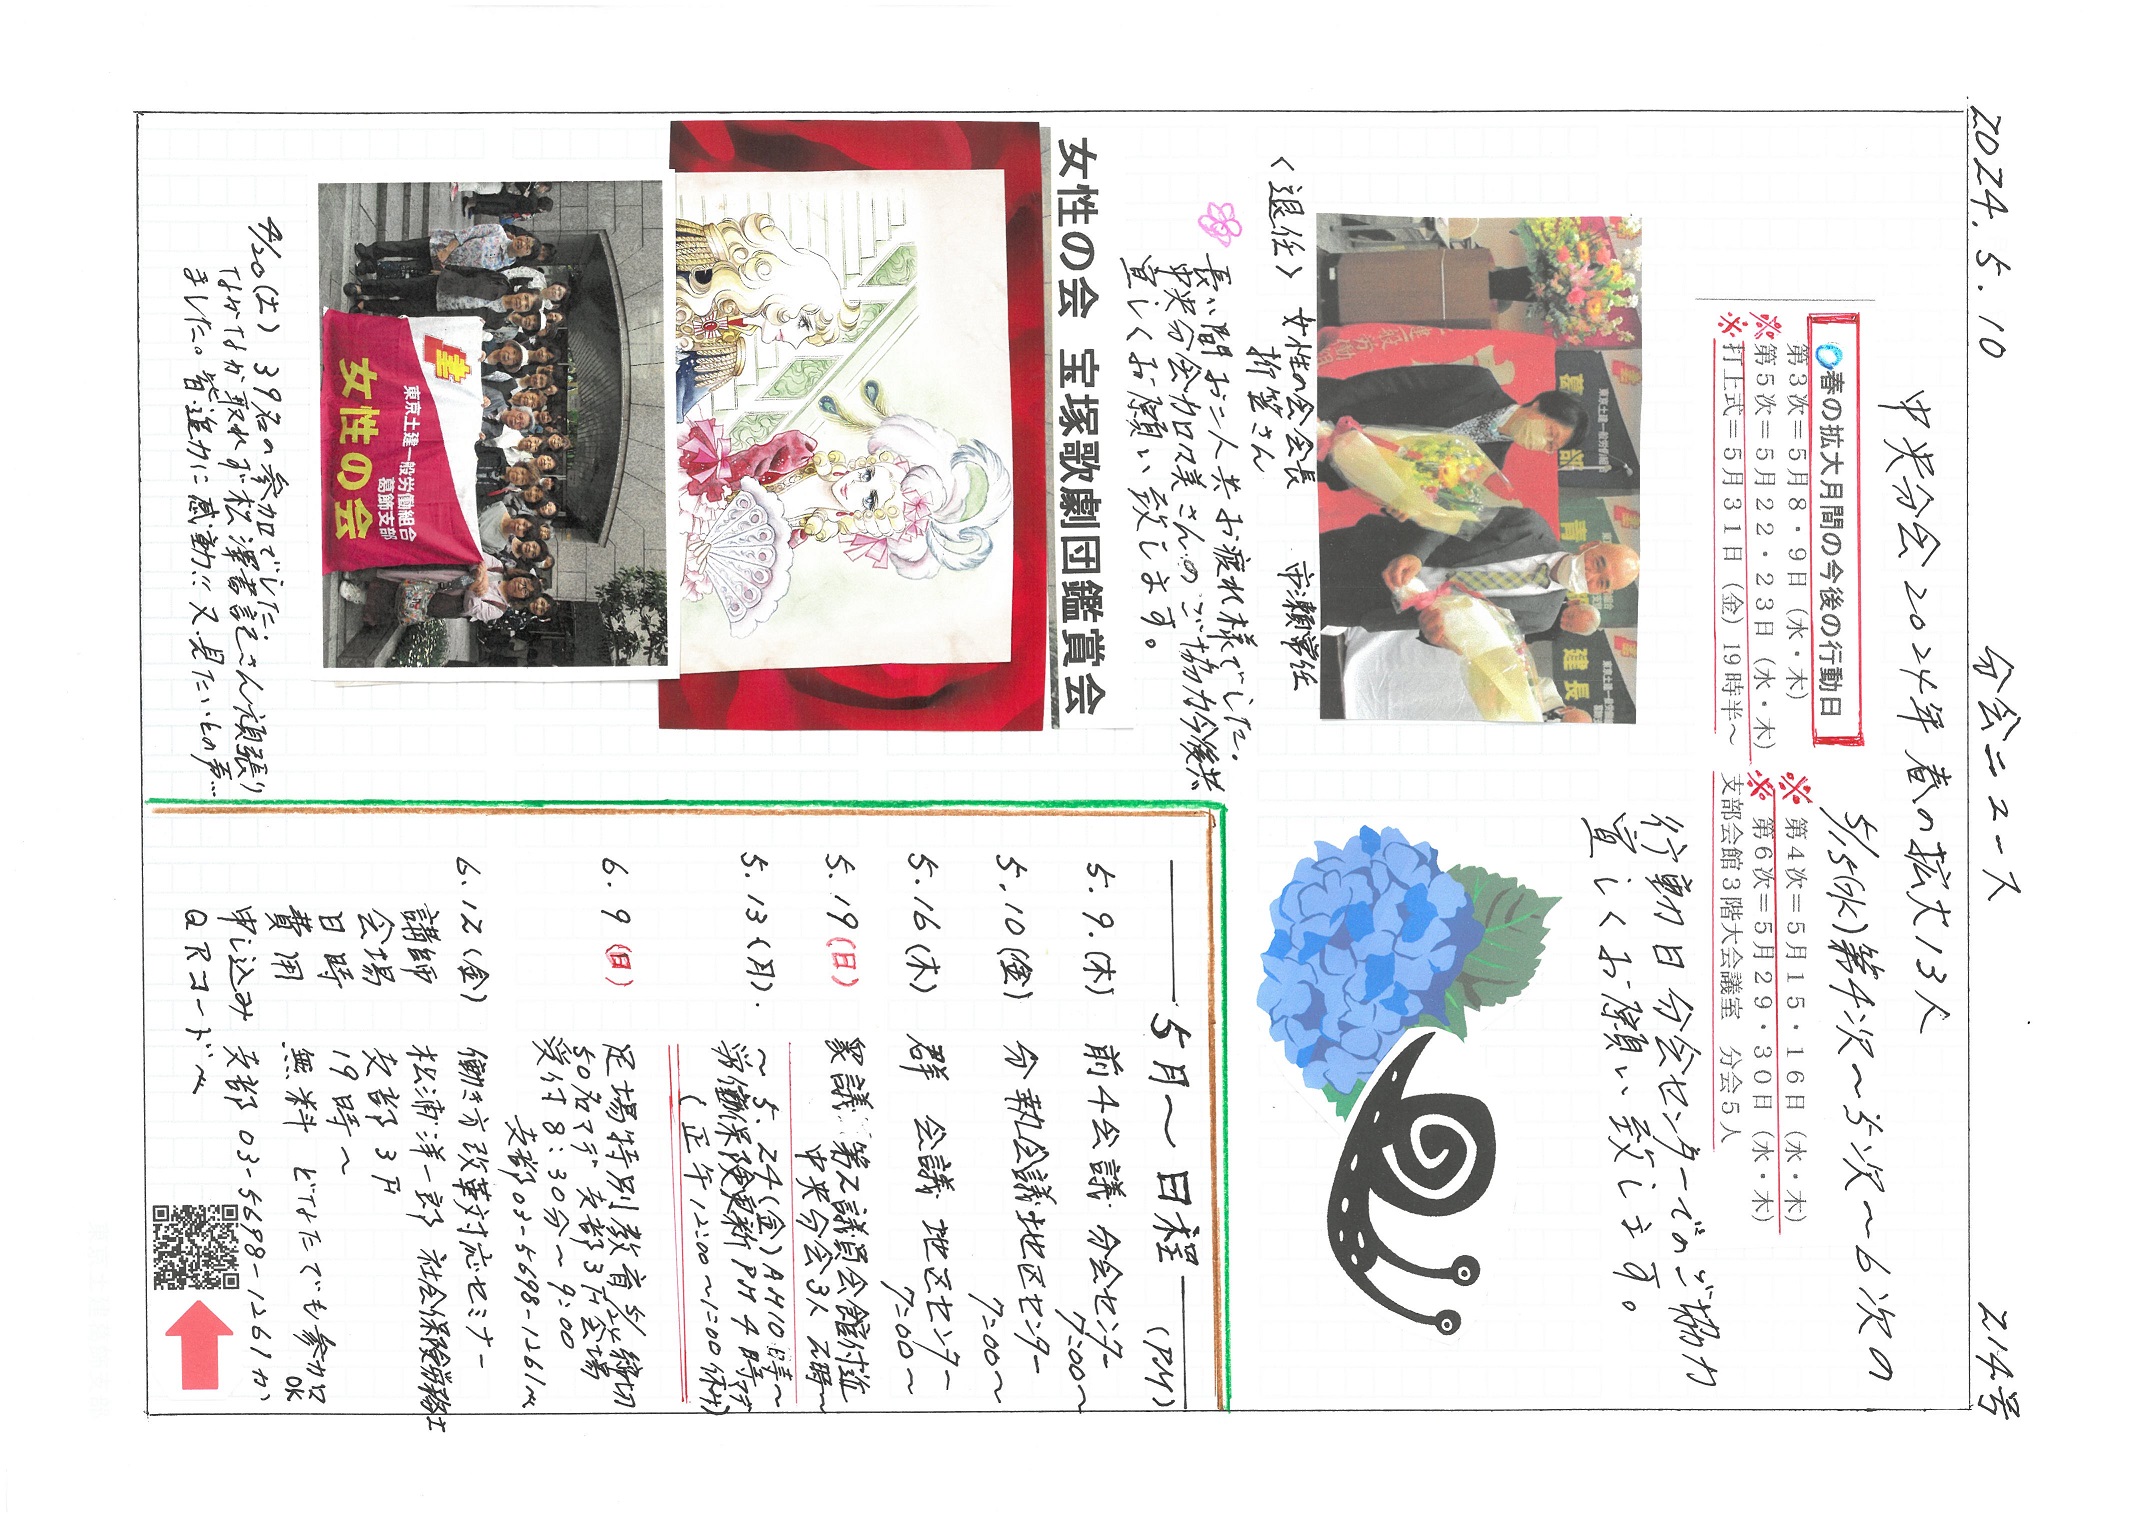 2024.5.10 分会ニュース 214号
中央分会2024年 春の拡大13人
5/15(水)第4次〜5次〜6次の
行動日分会センターでのご協力
宜しくお願い致します。
春の拡大月間の今後の行動日
第3次＝5月8・9日（水・木）
※ 第4次＝5月15・16日（水・木）
※ 第5次＝5月22・23日（水・木）
※ 第6次＝5月29・30日（水・木）
※ 打上式＝5月31日（金）19時半〜 支部会館3階大会議室 分会5人
東京土建一般労働組合
青
建 長
<退任> 女性の会会長 市瀬常任
折笠さん
長い間お二人共お疲れ様でした.
中央分会加口美さんのご協力今後共
宜しくお願い致します。
女性の会 宝塚歌劇団鑑賞会
東京土建一般労働組合
葛飾支部
女性の会
4/20(土) 39名の参加でした.
なかなか取れず松澤書記さん頑張り
ました。皆迫力に感動!!又見たいとの声…
5月〜日程 (PM)
5.9.(木) 前4会議 分会センター
7:00〜
5.10(金) 分執会議地区センター
7:00〜
5.16(木) 群会議 地区センター
7:00〜
5.19(日) 衆議第2議員会館付近
中央分会3人
5.13(月). 〜5.24(金)AM10時〜
労働保険更新PM4時
(正午12:00〜1:00休み)
6.9(日) 足場特別教育 5/24締切
50名マデ 支部3F会場
受付8:30分〜9:00
支部03-5698-1261へ
6.12(金) 働き方改革対応セミナー
講師 松浦洋一郎 社会保険労務士
会場 支部3F
日時 19時〜
費用 無料 どなたでも参加OK
申込み 支部 03-5698-1261か
QRコードへ